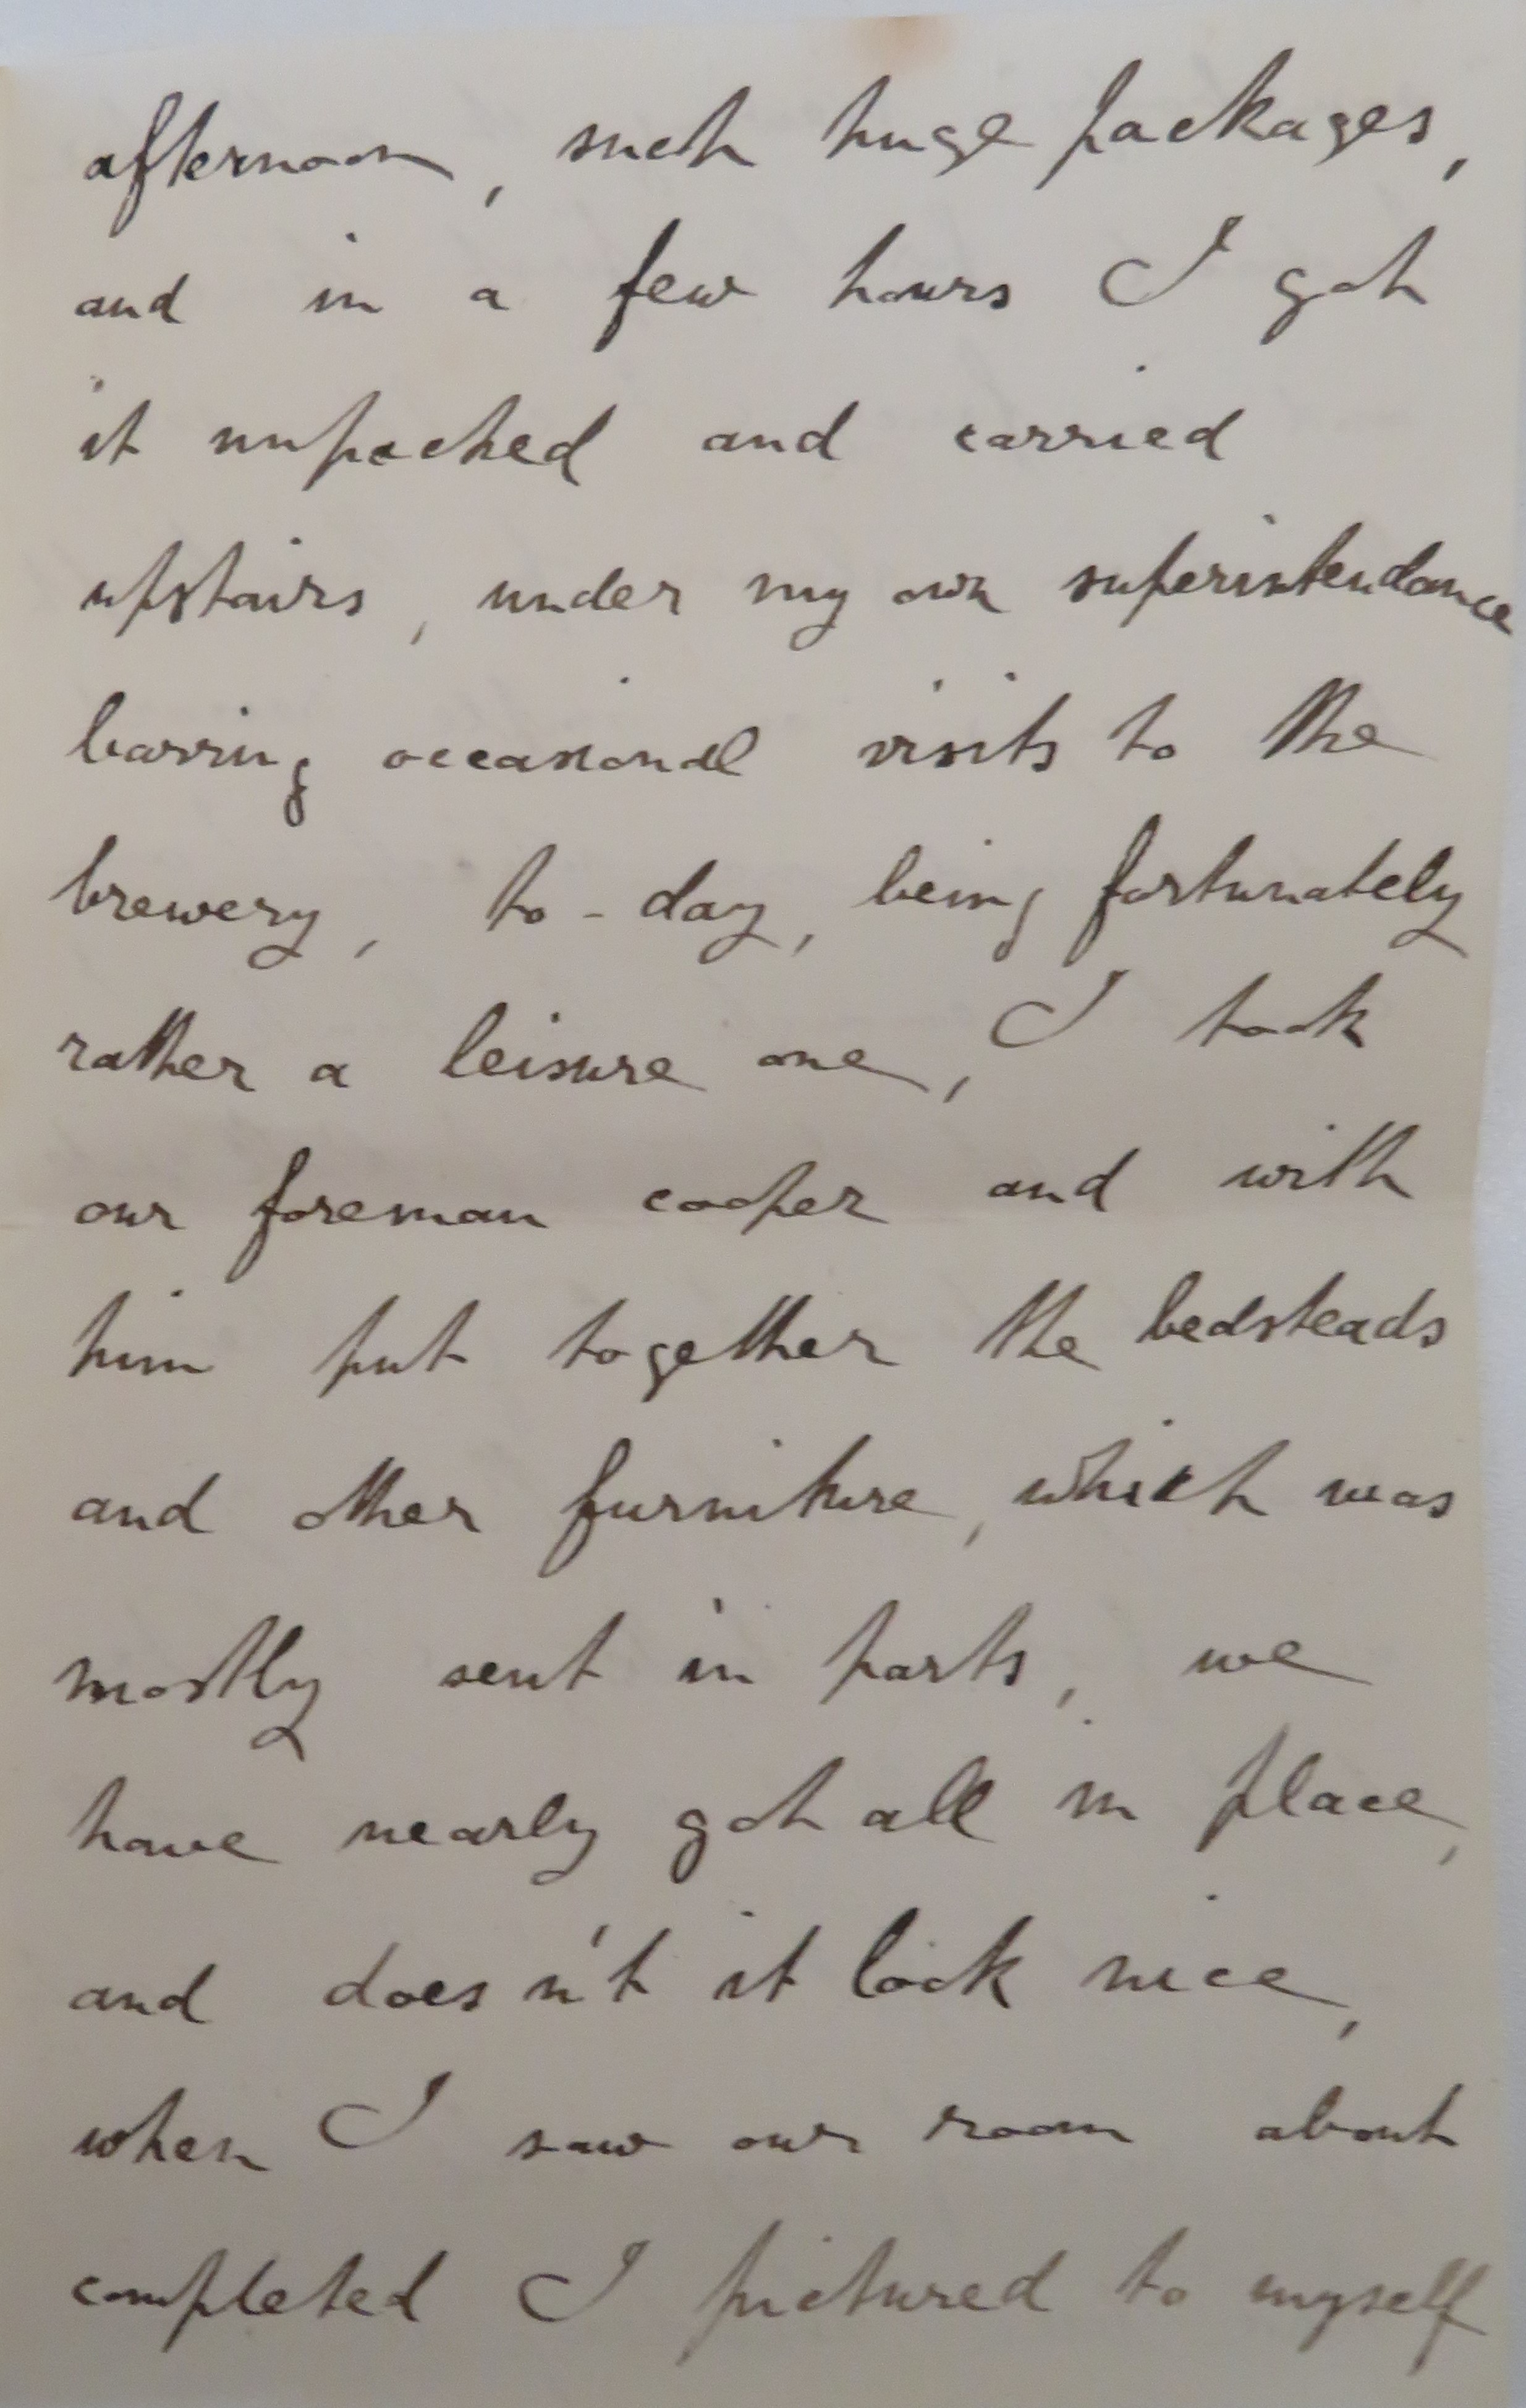 afternoon, such huge packages,
and in a few hours I got
it unpacked and carried
upstairs, under my own superintendance
barring occasional visits to the
brewery, to-day, being fortunately
rather a leisure one, I took
our foreman cooper and with
him put together the bedsteads
and other furniture, which was
mostly sent in parts, we
have nearly got all in place,
and doesn't it look nice,
when I saw our room about
completed I pictured to myself